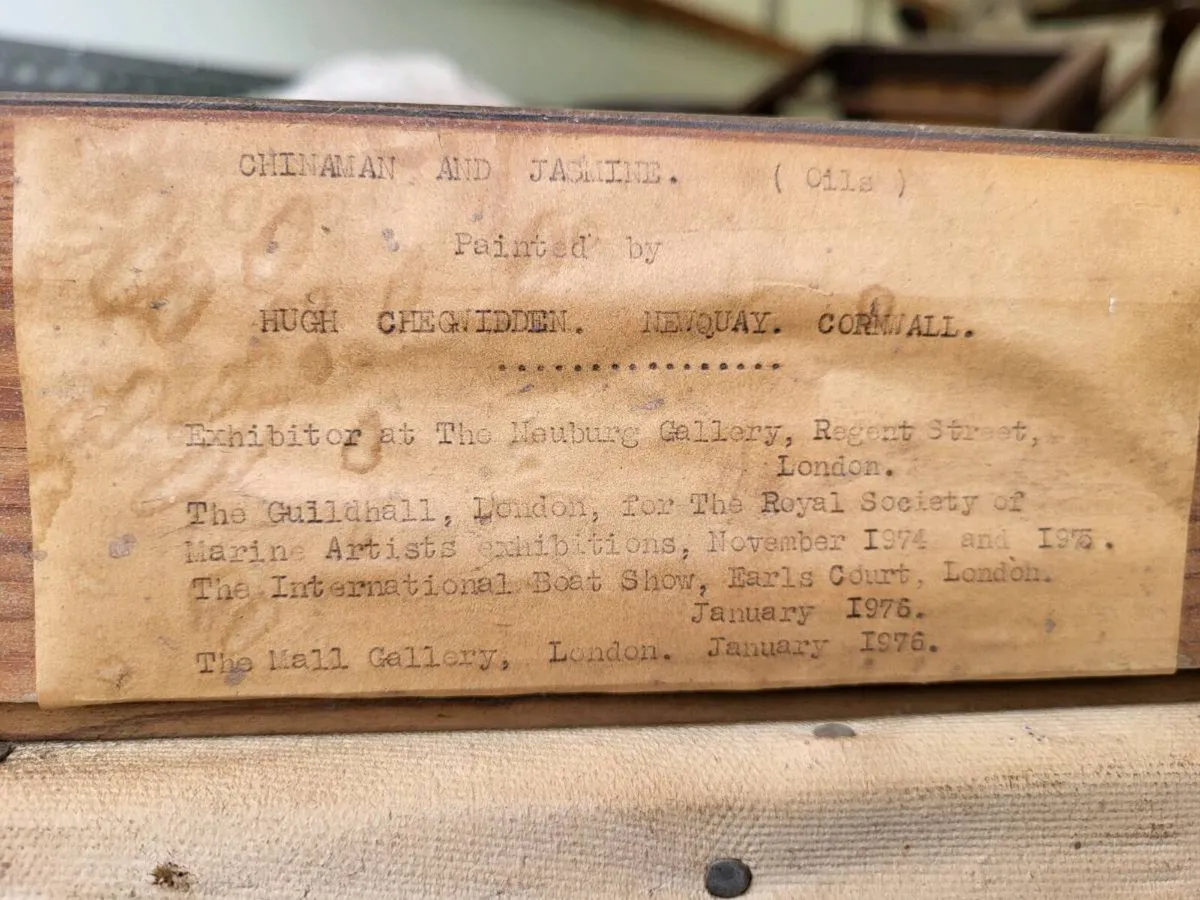 CHINAMAN AND JASMINE. ( Oils )
Painted by
HUGH CHEGWIDDEN. NEWQUAY. CORNWALL.
................
Exhibitor at The Neuburg Gallery, Regent Street,
London.
The Guildhall, London, for The Royal Society of
Marine Artists exhibitions, November 1974 and 1975.
The International Boat Show, Earls Court, London.
January 1976.
The Mall Gallery, London. January 1976.